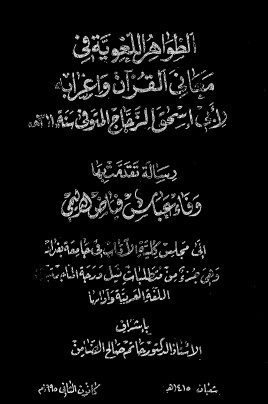 الظواهر اللغوية في
معاني القرآن وإعرابه
لأبي إسحق الزجاج المتوفى سنة ٣١١هـ
رسالة تقدمت بها
وفاء عباس فياض
إلى مجلس كلية الآداب في جامعة بغداد
وهي جزء من متطلبات نيل درجة الماجستير
اللغة العربية وآدابها
بإشراف
الأستاذ الدكتور حاتم صالح الضامن
شعبان ١٤١٥هـ
كانون الثاني ١٩٩٥م